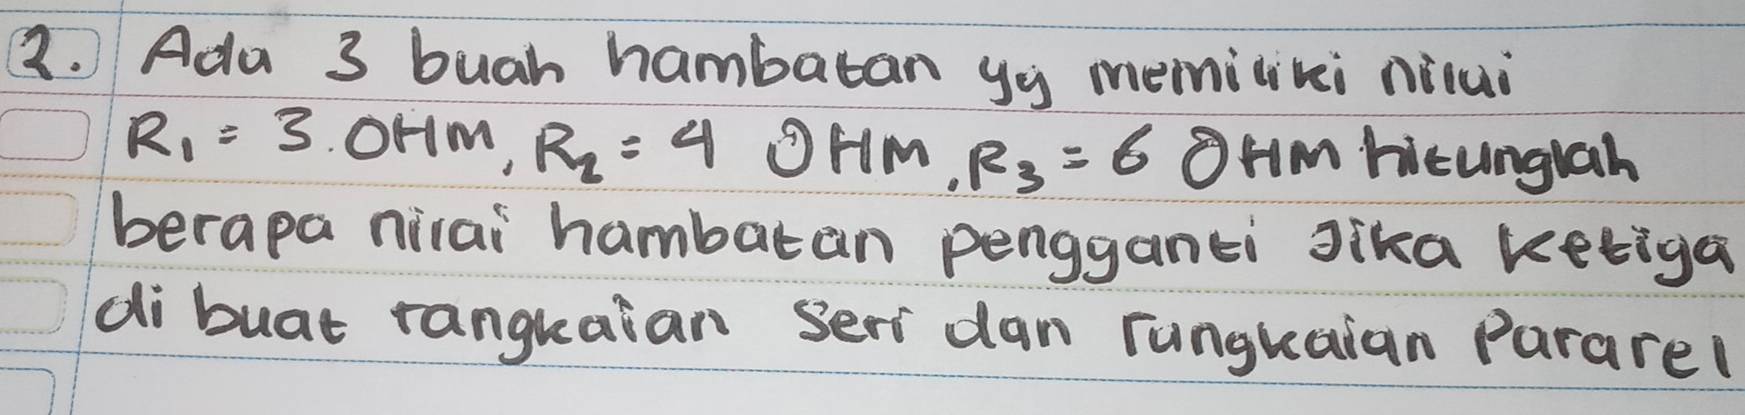 2. Ada 3 buah hambatan yg memiliki nilai
R₁ = 3. OHM, R₂ = 4 OHM, R₃ = 6 OHM hitunglah
berapa nilai hambatan pengganti Jika ketiga
di buat rangkaian seri dan rangkaian Pararel